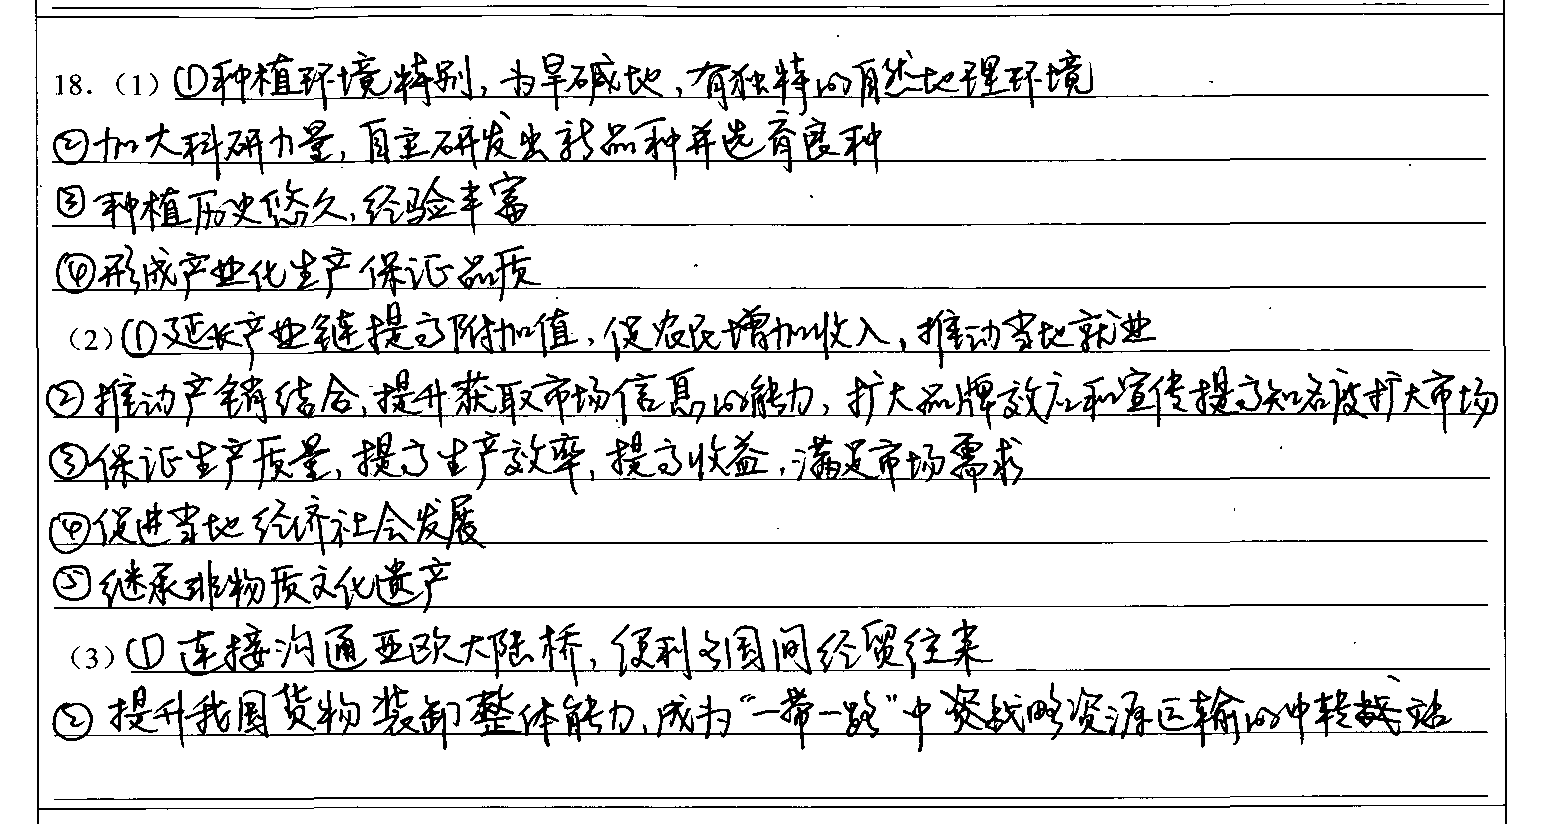 18.（1）①种植环境特别，为旱碱地，有独特的自然地理环境
②加大科研力量，自主研发出新品种并选育良种
③种植历史悠久，经验丰富
④形成产业化生产保证品质
（2）①延长产业链提高附加值，促农民增加收入，推动当地就业
②推动产销结合，提升获取市场信息的能力，扩大品牌效应和宣传提高知名度扩大市场
③保证生产质量，提高生产效率，提高收益，满足市场需求
④促进当地经济社会发展
⑤继承非物质文化遗产
（3）①连接沟通亚欧大陆桥，便利各国间经贸往来
②提升我国货物装卸整体能力，成为“一带一路”中战略资源运输的中转站